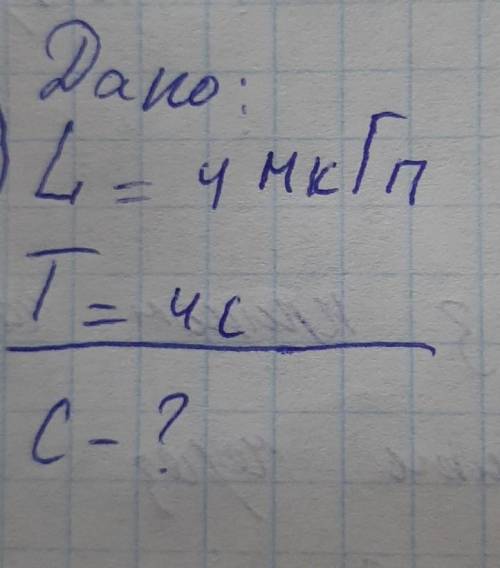 Дано:
L = 4 мкГн
T = 4с
C - ?